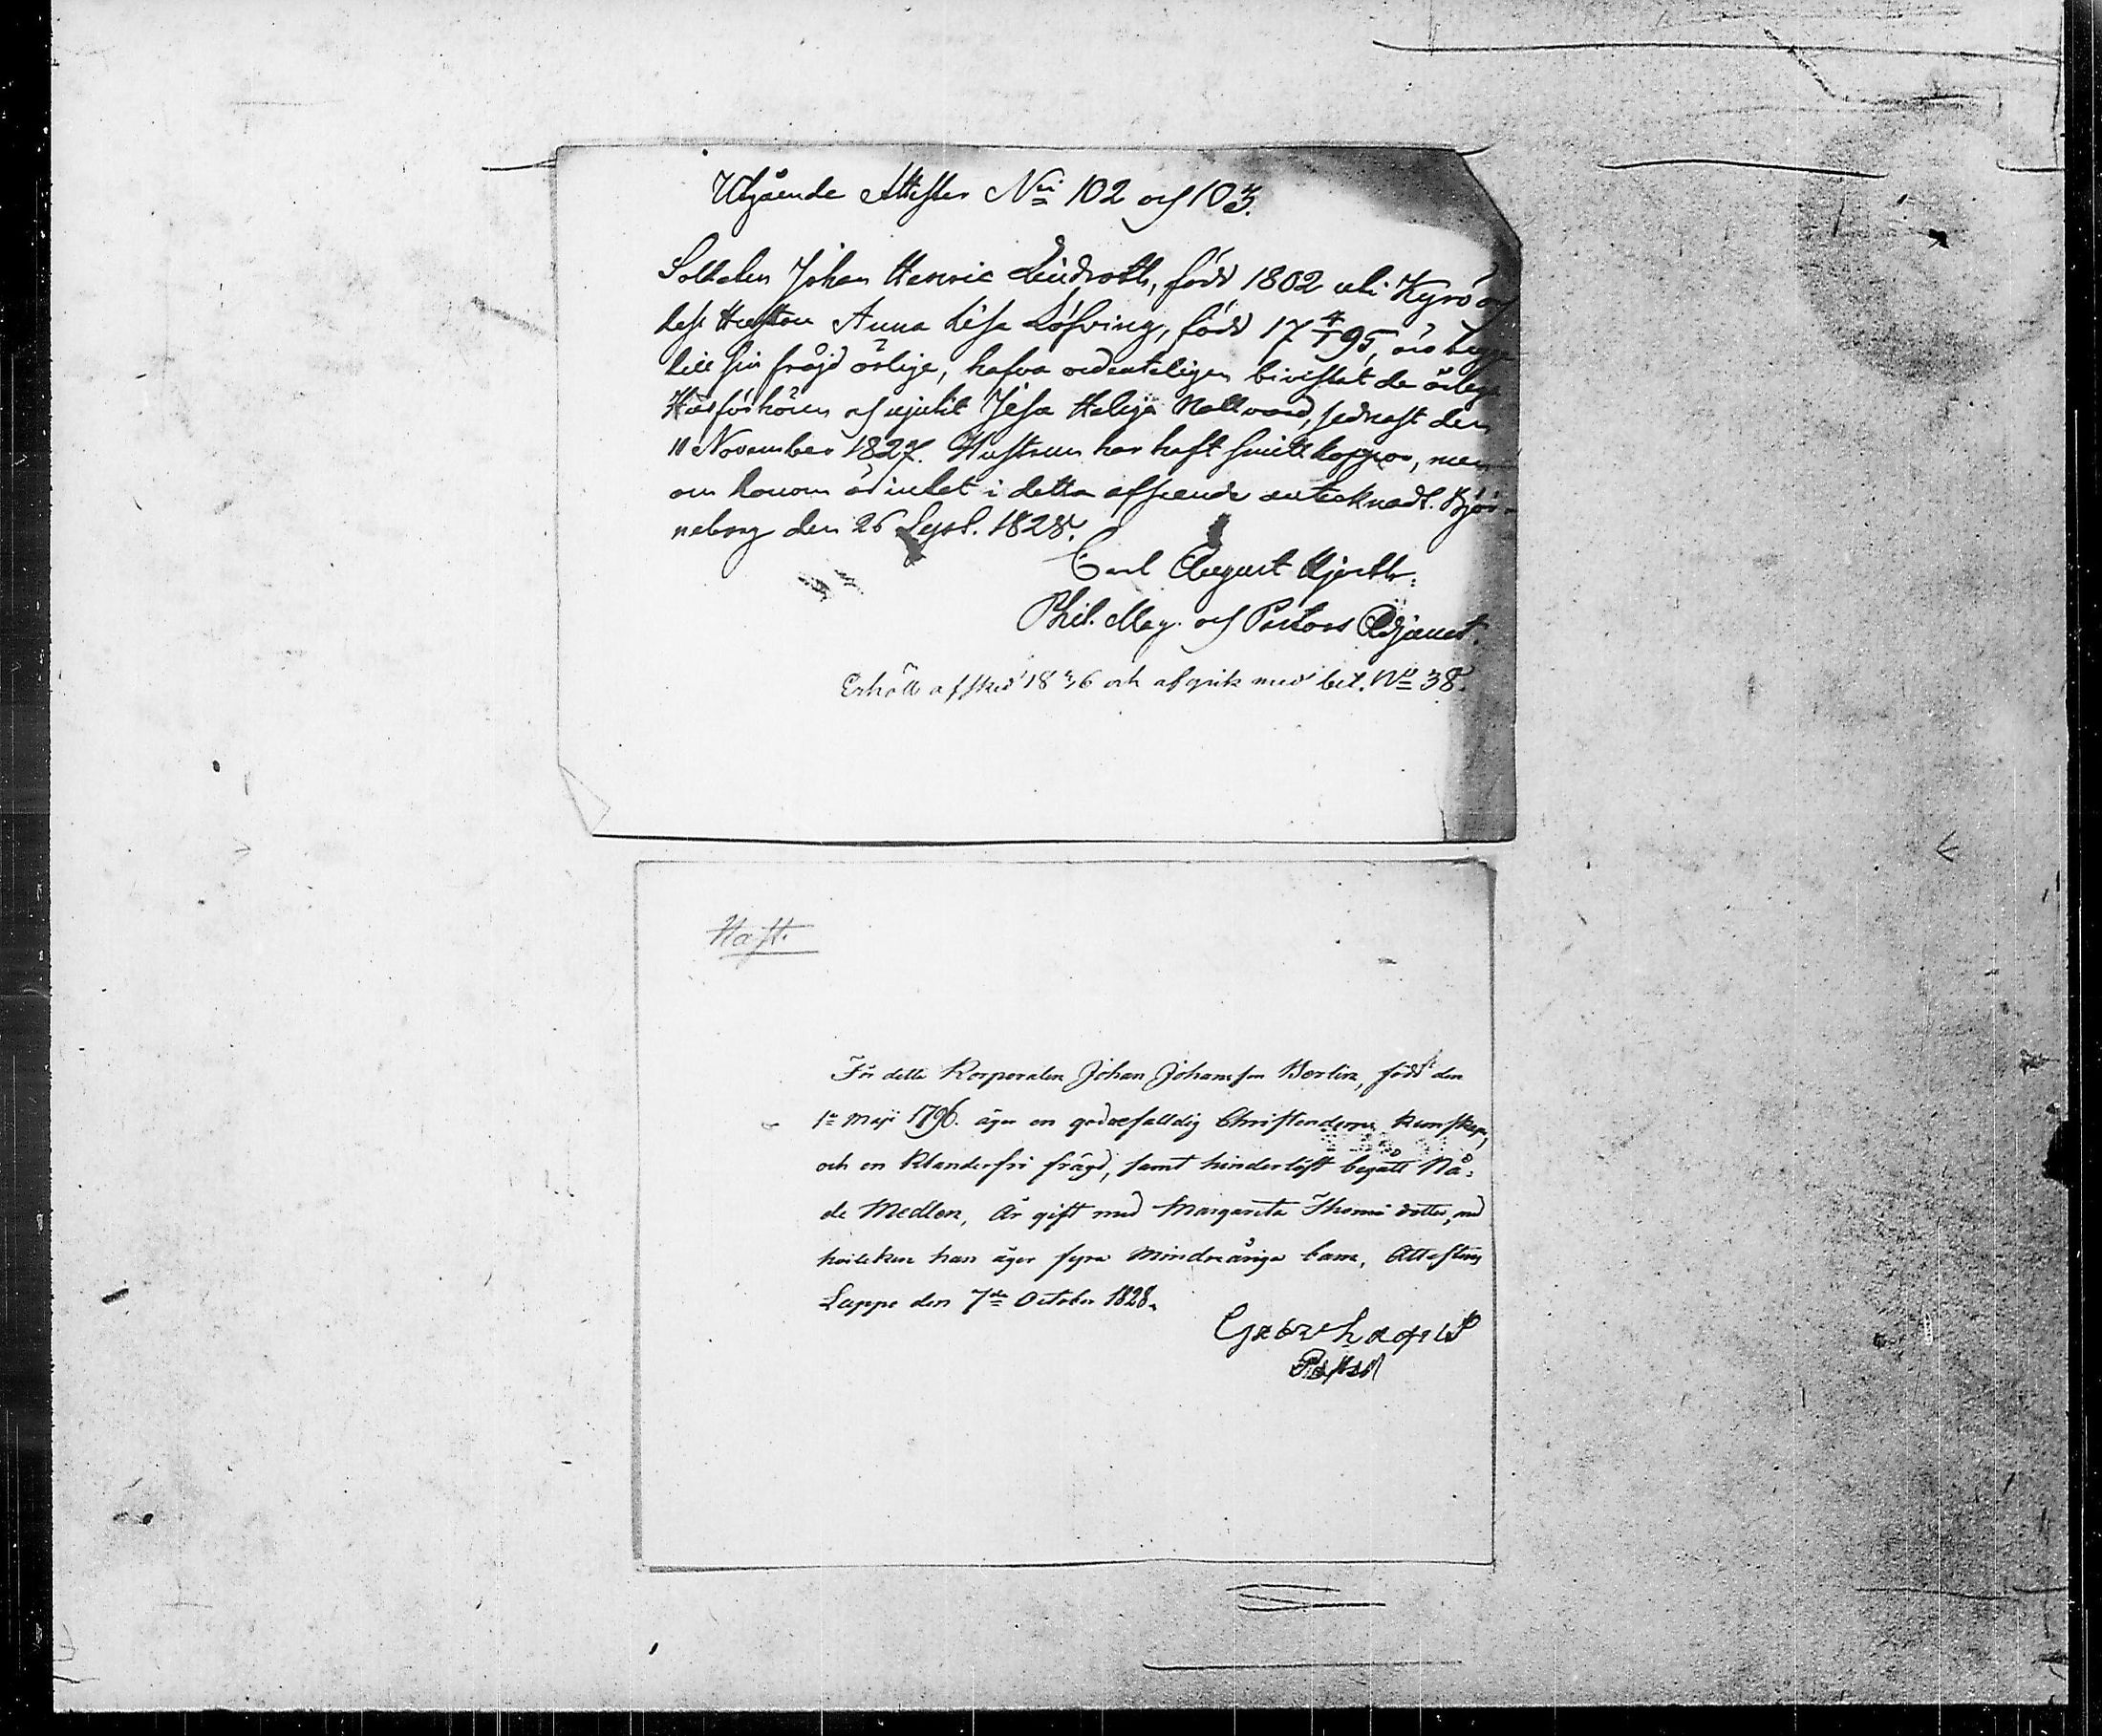 Utgående Attester N:ri 102 och 103.
Soldaten Johan Henric Lindroth, född 1802 uti Kyrö och
dess Hustru Anna Lisa Löfving, född 17 4/1 95, äro begge
till sin fräjd ärlige, hafva ordenteligen bivistat de årlige
Husförhören och njutit Jesu Heliga Nattvard, sednast den
11 November 1827. Hustrun har haft smittkoppor, men
om honom är intet i detta afseende antecknadt. Björ-
neborg den 26 Sept. 1828.
Carl August
Phil. Mag. och Pastors Adjunct.
Erhöll afsked 1836 och afgick med bet. No 38.
Haft.
För detta Korporalen Johan Johansson Berlin, född den
1:a Maji 1796. äger en godkefalldig Christendoms kunskap,
och en Klanderfri frägd, samt hinderlöst begått Nå-
de Medlen, Är gift med Margareta Thomæ dotter, med
hvilcken han äger fyra Mindreåriga barn, Attesteras
Lappo den 7de October 1828.